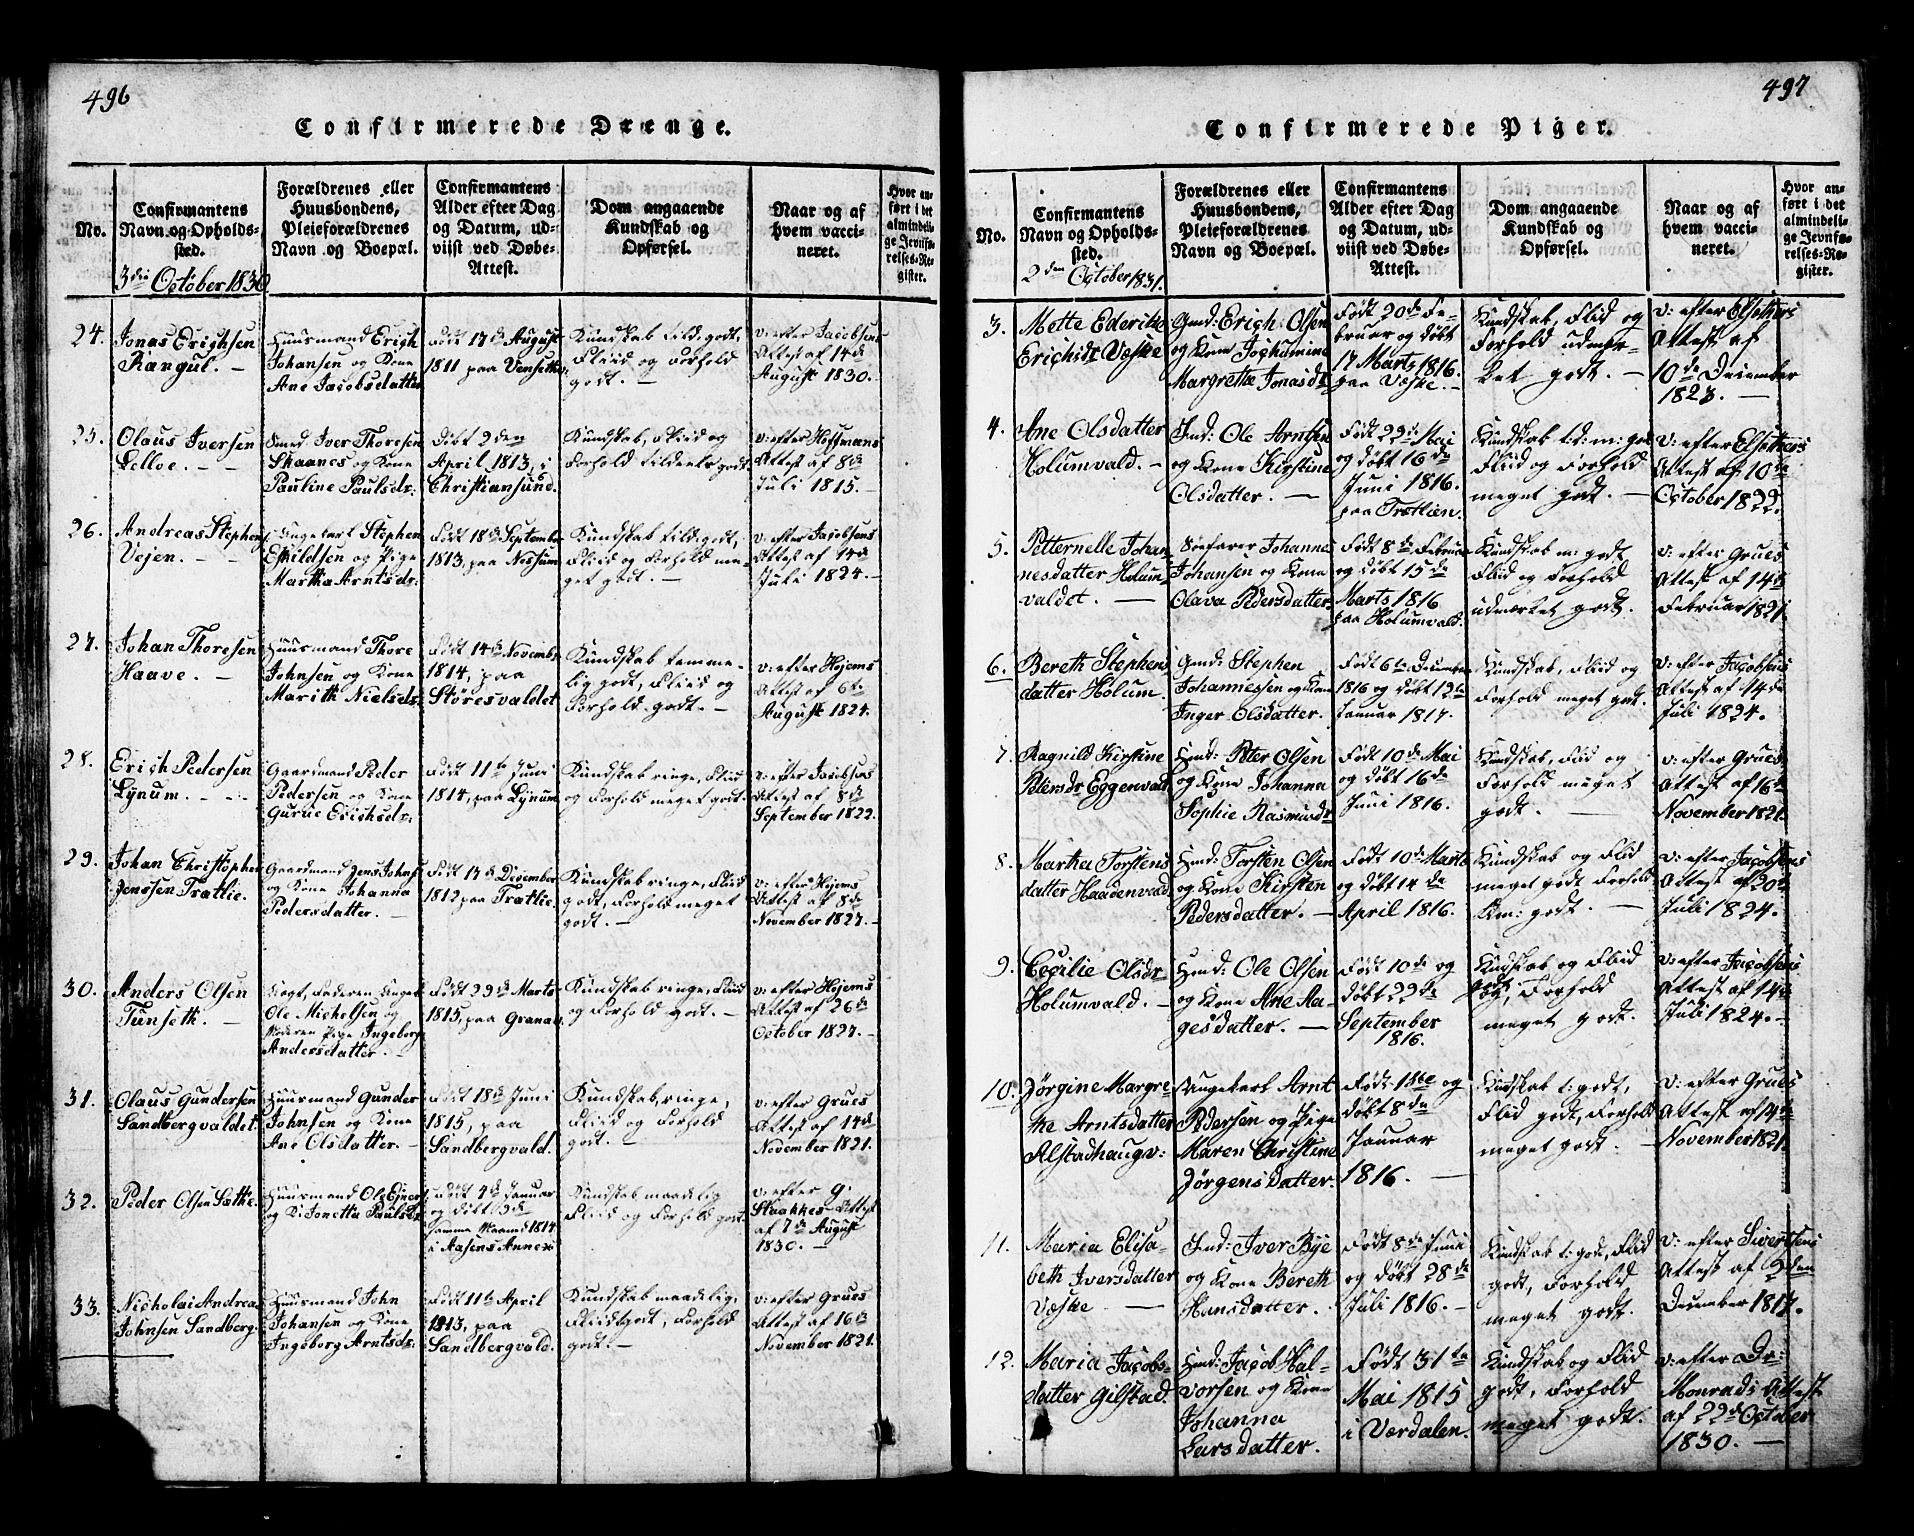 496
Confirmerede Drænge.
No.
Confirmantens
Navn og Opholds-
sted.
Forældrenes eller
Huusbondens,
Pleieforældrenes
Navn og Boepæl.
Confirmantens
Alder efter Dag
og Datum, ud-
viist ved Døbe-
Attest.
Dom angaaende
Kundskab og
Opførsel.
Naar og af
hvem vacci-
neret.
Hvor an-
ført i det
almindeli-
ge Jevnfø-
relses-Re-
gister.
3die October 1830
24.
Jonas Erichsen
Rangul. -
Huusmand Erich
Johansen og Kone
Ane Jacobsdatter
Født 17de August
1811 paa
Kundskab tild. godt,
Fliid og Forhold
godt. -
v: efter Jacobsens
Attest af 14de
August 1830. -
25.
Olaus Iversen
Lelloe. - -
Smed Iver Thoresen
Skaanes og Kone
Pauline Paulsdr:
Døbt 2den
April 1813, i
Christiansund.
Kundskab, Fliid og
Forhold tildeels godt.
v: efter Hoffmans
Attest af 8de
Juli 1815. -
26.
Andreas Stephens.
Vejen. -
Ungekarl Stephen
Eskildsen og Pige
Martha Arntsdr.
Født 18de September
1813, paa Nossum
Kundskab tild. godt,
Fliid og Forhold me-
get godt. -
v: efter Jacobsens
Attest af 14de
Juli 1824. -
27.
Johan Thoresen
Haave. -
Huusmand Thore
Johnsen og Kone
Marith Nielsdr.
Født 14de Novembr.
1814, paa
Storesvaldet
Kundskab temme-
lig godt, Fliid og
Forhold godt. -
v: efter Hojems
Attest af 6te
August 1824.
28.
Erich Pedersen
Lynum. - -
Gaardmand Peder
Pedersen og Kone
Gurue Erichsdr:
Født 11te Juni
1814, paa Lynum
Kundskab ringe, Fliid
og Forhold meget godt.
v: efter Jacobsens
Attest af 8de
September 1822.
29.
Johan Christopher
Jenssen Trætlie.
Gaardmand Jens Johns.
og Kone Johanna
Pedersdatter. -
Født 17de December
1812 paa Trætlie.
Kundskab ringe, Fliid
godt, Forhold meget
godt. -
v: efter Hojems
Attest af 8de
November 1827. -
30.
Anders Olsen
Tunseth. -
Faderen Ungek.
Ole Michelsen og
Moderen Pige Ingeborg
Andersdatter. -
Født 29de Marts
1815, paa Granaas
Kundskab ringe, Fliid
og Forhold godt. -
v: efter Hojems
Attest af 26de
October 1827. -
31.
Olaus Gundersen
Sandbergvaldet.
Huusmand Gunder
Johnsen og Kone
Ane Olsdatter. -
Født 18de Juni
1815, paa
Sandbergvald.
Kundskab, ringe,
Fliid og Forhold
godt. -
v: efter Grues
Attest af 14de
November 1821.
32.
Peder Olsen Sæthe.
Huusmand Ole Ejners.
og K: Jonetta Paulsdr
Født 4de Januar
og døbt 9de
samme Maaned 1814
i Aasens Annex
Kundskab maadelig
Fliid og Forhold godt.
v: efter G:
Staakkes Attest
af 7de August
1830. -
33.
Nicholai Andreas
Johnsen Sandberg.
Huusmand John
Johansen og Kone
Ingeborg Arntsdr:
Født 11te April
1813, paa
Sandbergvald.
Kundskab maadelig,
Fliid godt, Forhold
godt. -
v: efter Grues
Attest af 16de
November 1821.
497
Confirmerede Piger.
No.
Confirmantens
Navn og Opholds-
sted.
Forældrenes eller
Huusbondens,
Pleieforældrenes
Navn og Boepæl.
Confirmantens
Alder efter Dag
og Datum, ud-
viist ved Døbe-
Attest.
Dom angaaende
Kundskab og
Opførsel.
Naar og af
hvem vacci-
neret.
Hvor an-
ført i det
almindeli-
ge Jevnfø-
relses-Re-
gister.
2den October 1831.
3.
Mette Ederikke
Erichsdr Væske
Gmd: Erich Olsen
og Kone Jochumine
Margrethe Jonasdr
Født 20de Fe-
bruar og døbt
17 Marts 1816.
paa Væske. -
Kundskab, Flid og
Forhold udmær-
ket godt. -
v: efter Elsethers
Attest af
10de December
1823. -
4.
Ane Olsdatter
Holumvald. -
Ind: Ole Arntsen
og Kone Kirstine
Olsdatter. -
Født 22de Mai
og døbt 16de
Juni 1816.
paa Trætlien.
Kundskab t:d: m: godt
Fliid og Forhold
meget godt. -
v: efter Elsethers
Attest af 10de
October 1822.
5.
Petternelle Johan-
nesdatter Holum-
valdet. -
Søefarer Johannes
Johansen og Kone
Olava Pedersdatter.
Født 8de Februar
og døbt 15de
Marts 1816
paa Holumvald.
Kundskab m: godt,
Fliid og Forhold
udmærket godt.
v: efter Grues
Attest af 14de
Februar 1821.
6.
Bereth Stephens-
datter Holum.
Gmd: Stephen
Johannessen og Kone
Inger Olsdatter.
Født 6te December
1816 og døbt 12te
Januar 1817.
Kundskab, Fliid og
Forhold meget godt.
v: efter Jacobsens
Attest af 14de
Juli 1824.
7.
Ragnild Kirstine
Petersdr Eggenvald.
Hmd: Peter Olsen
og Kone Johanna
Sophie Rasmusdr
Født 10de Mai
og døbt 16de
Juni 1816.
Kundskab, Flid og
Forhold meget
godt. -
v: efter Grues
Attest af 16de
November 1821.
8.
Martha Torstens-
datter Haadenvald
Hmd: Torsten Olsen
og Kone Kirsten
Pedersdatter. -
Født 10de Marts
og døbt 14de
April 1816.
Kundskab og Flid
meget godt Forhold
tem: godt. -
v: efter Jacobsens
Attest af 20de
Juli 1824.
9.
Cecilie Olsdr
Holumvald. -
Hmd: Ole Olsen
og Kone Ane Aa-
gesdatter. -
Født 10de og
døbt 22de
September
1816.
Kundskab og Fliid
godt, Forhold
meget godt.
v: efter Jacobsens
Attest af 14de
Juli 1824. -
10.
Jørgine Margre-
the Arntsdatter
Alstadhaugv:
Ungekarl Arnt
Pedersen og Pige
Maren Christine
Jørgensdatter.
Født 1ste og
døbt 8de
Januar
1816. -
Kundskab t: godt,
Flid godt, Forhold
meget godt. -
v: efter Grues
Attest af 14de
November 1821.
11.
Maria Elisa-
beth Iversdatter
Væske -
Ind: Iver Bye
og Kone Bereth
Hansdatter. -
Født 8de Juni
og døbt 28de
Juli 1816. -
Kundskab t: godt, Flid
godt, Forhold
meget godt.
v: efter Sivertsens
Attest af 2den
December 1817.
12.
Maria Jacobs-
datter Gilstad.
Hmd: Jacob Hal-
vorsen og Kone
Johanna
Larsdatter.
Født 31te
Mai 1815
i Værdalen.
Kundskab og Flid
godt, Forhold
meget godt.
v: efter Dr:
Monrads Attest
af 22de October
1830. -